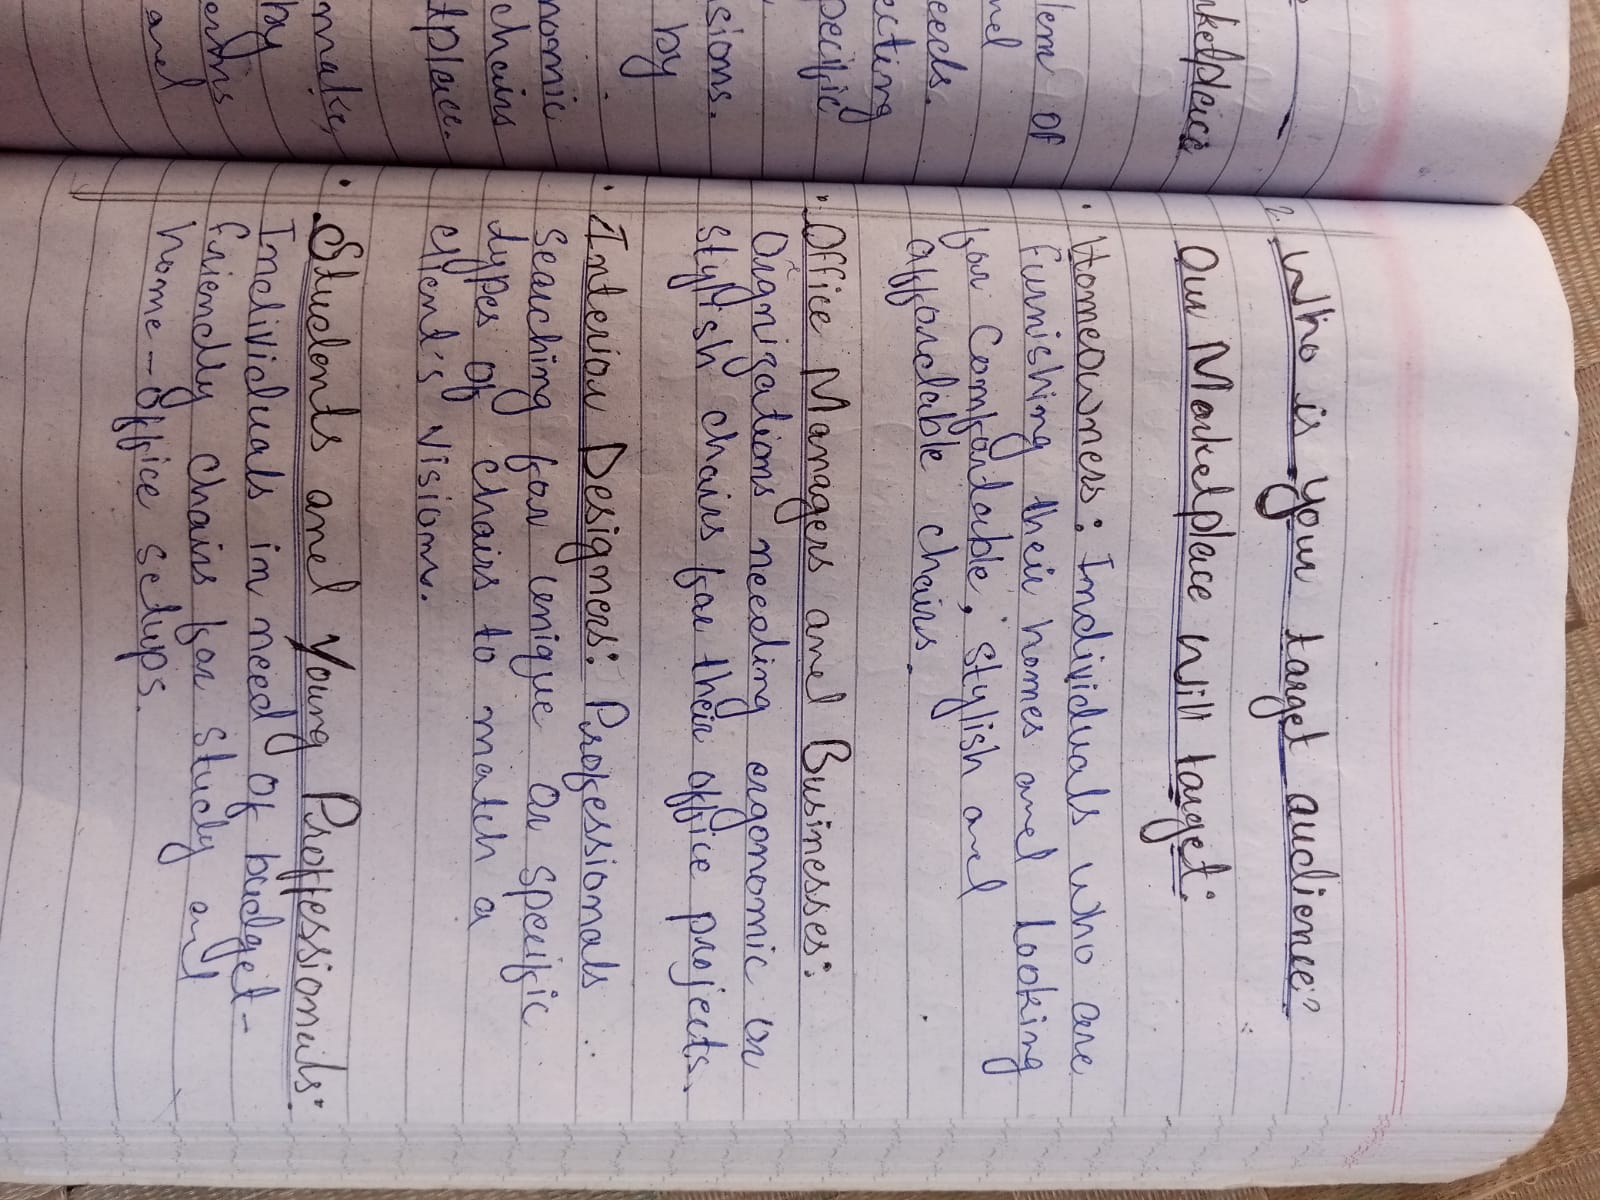 nketplace
lem of
nel
eeds.
ecting
pecific
sions.
by
nomic
chairs
tplace.
make,
by
erms
and
2. Who is your target audience?
Our Marketplace Will target:
• Homeowners: Individuals who are
furnishing their homes and looking
for Comfortable, stylish and
affordable chairs.
• Office Managers and Businesses:
Orgnizations needing ergonomic or
stylish chairs for their office projects.
• Interior Designers: Professionals
Searching for unique or specific
types of chairs to match a
client's vision.
• Students and Young Proffessionals:
Individuals in need of budget-
friendly chairs for study and
home-office setups.